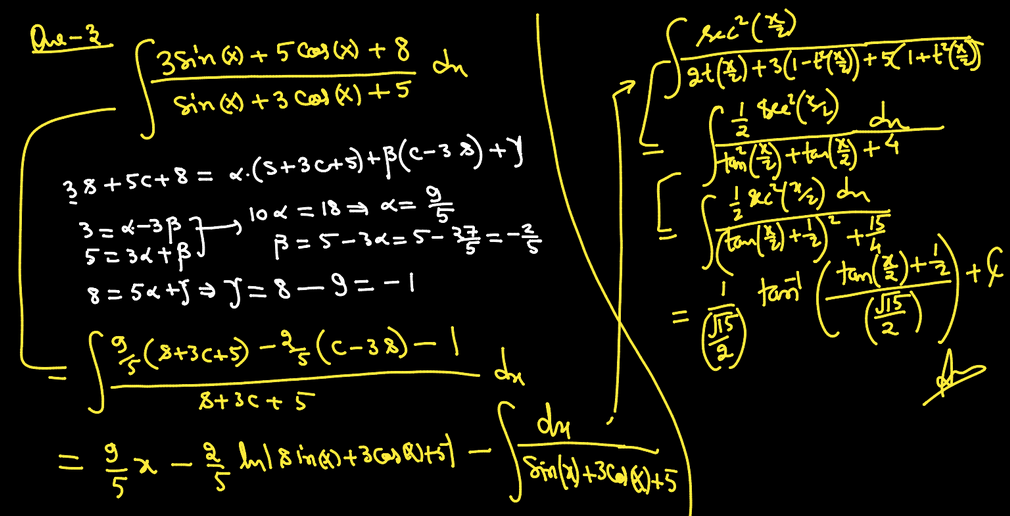 Que-3
∫ (3sin(x) + 5cos(x) + 8)/(sin(x) + 3cos(x) + 5) dx
3s + 5c + 8 = α·(s + 3c + 5) + β(c - 3s) + γ
3 = α - 3β
5 = 3α + β
10α = 18 ⇒ α = 9/5
β = 5 - 3α = 5 - 27/5 = -2/5
8 = 5α + γ ⇒ γ = 8 - 9 = -1
= ∫ (9/5 (s + 3c + 5) - 2/5 (c - 3s) - 1)/(s + 3c + 5) dx
= 9/5 x - 2/5 ln|sin(x) + 3cos(x) + 5| - ∫ dx/(sin(x) + 3cos(x) + 5)
∫ sec²(x/2)/(2t(x/2) + 3(1 - t²(x/2)) + 5(1 + t²(x/2)))
= ∫ (1/2 sec²(x/2) dx)/(tan²(x/2) + tan(x/2) + 4)
= ∫ (1/2 sec²(x/2) dx)/((tan(x/2) + 1/2)² + 15/4)
= 1/(√15/2) tan⁻¹((tan(x/2) + 1/2)/(√15/2)) + C